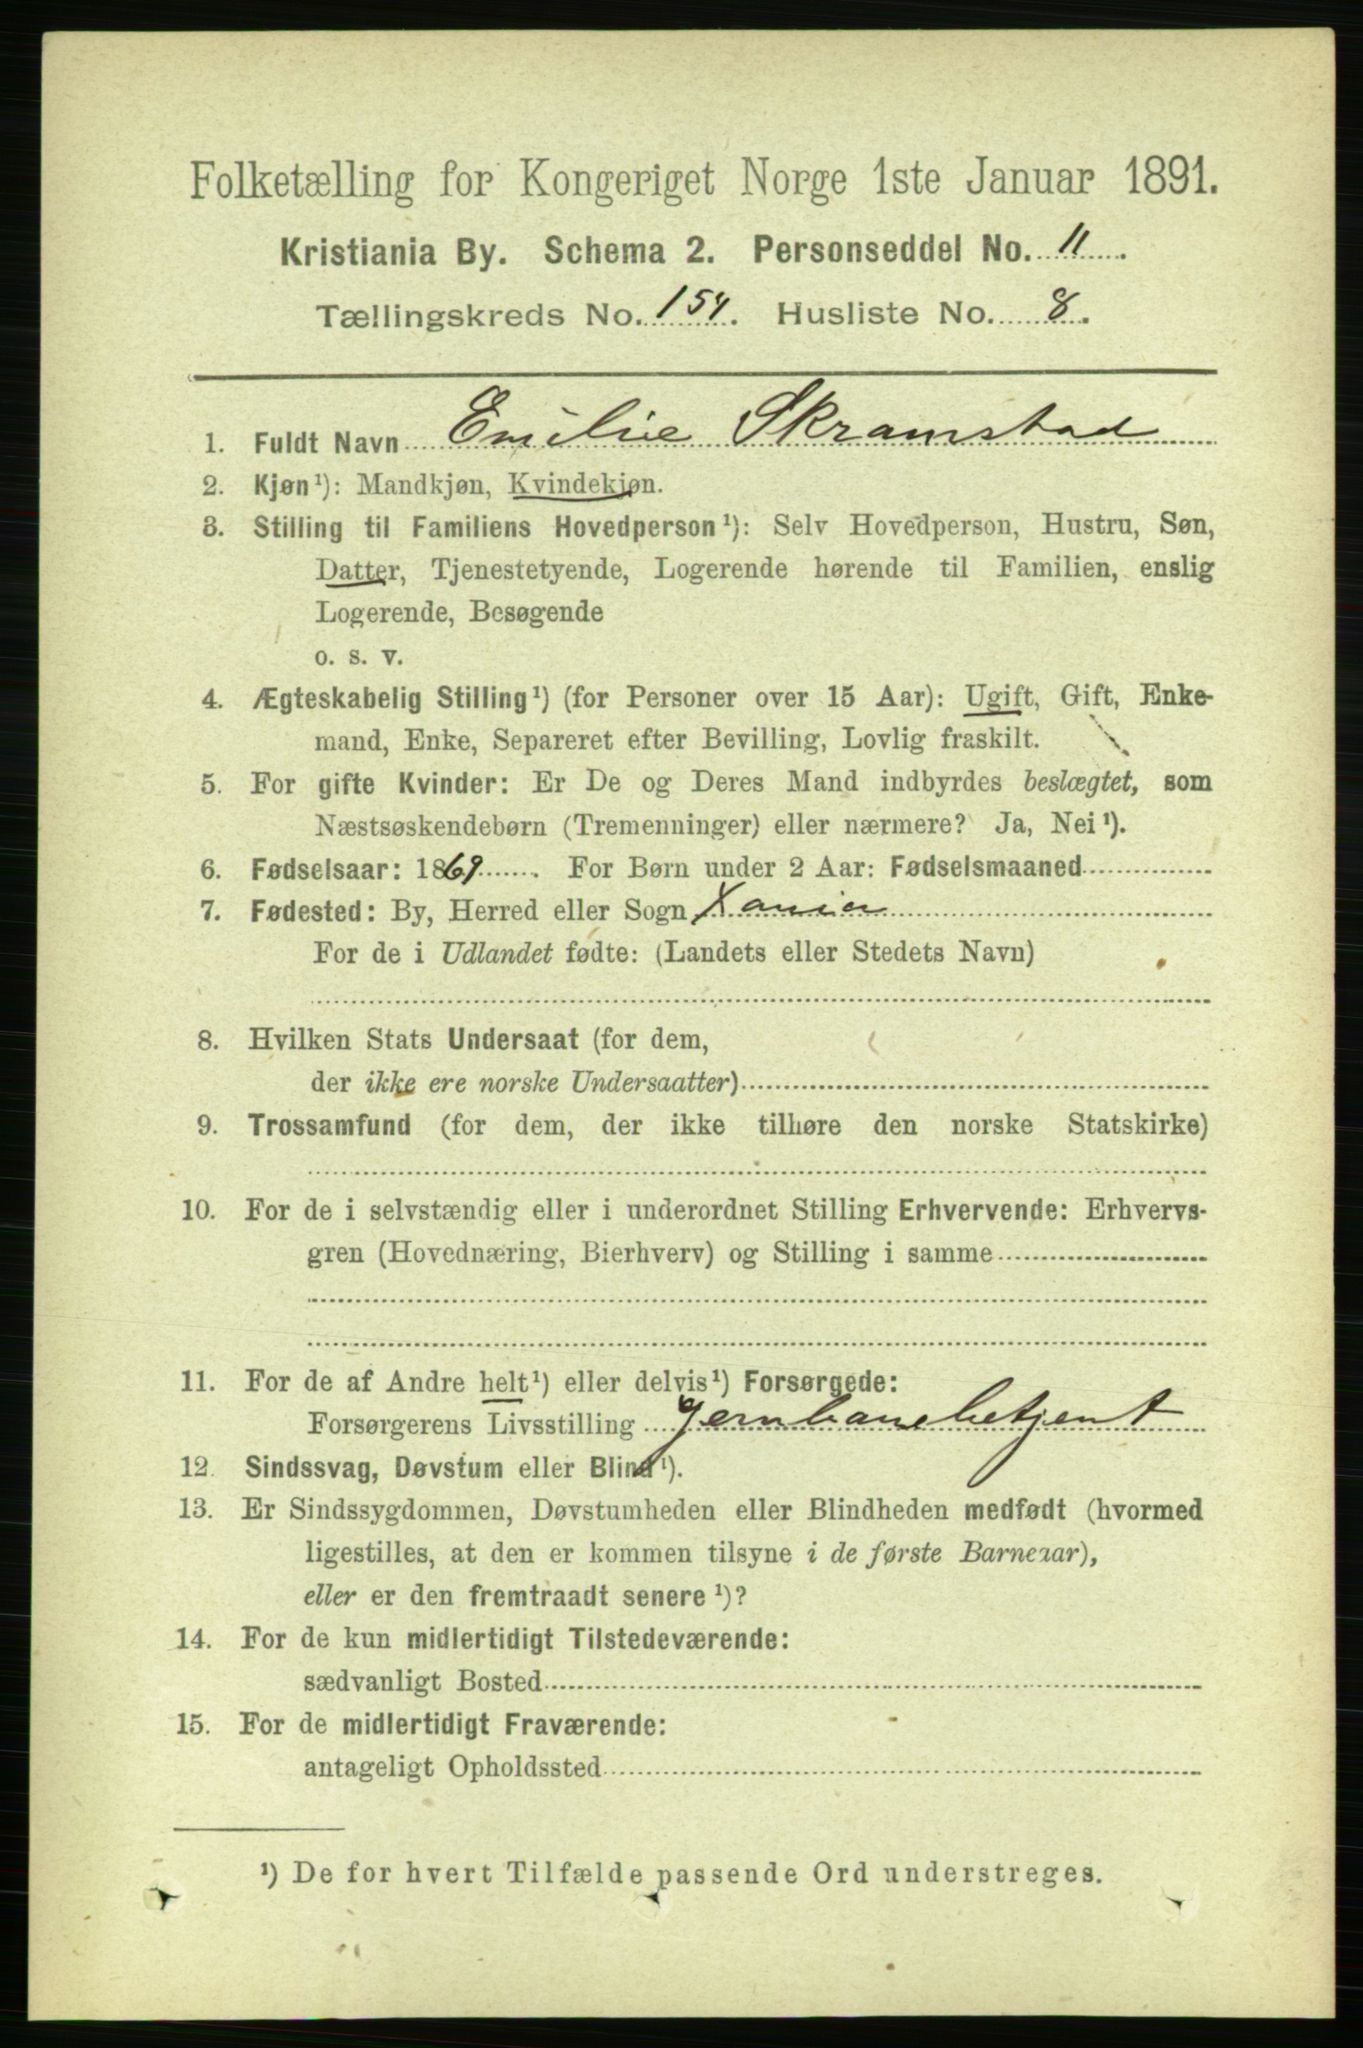 Folketælling for Kongeriget Norge 1ste Januar 1891.
Kristiania By. Schema 2. Personseddel No. 11.
Tællingskreds No. 154. Husliste No. 8.
1. Fuldt Navn Emilie Skramstad
2. Kjøn¹): Mandkjøn, Kvindekjøn.
3. Stilling til Familiens Hovedperson¹): Selv Hovedperson, Hustru, Søn,
Datter, Tjenestetyende, Logerende hørende til Familien, enslig
Logerende, Besøgende
o. s. v.
4. Ægteskabelig Stilling¹) (for Personer over 15 Aar): Ugift, Gift, Enke-
mand, Enke, Separeret efter Bevilling, Lovlig fraskilt.
5. For gifte Kvinder: Er De og Deres Mand indbyrdes beslægtet, som
Næstsøskendebørn (Tremenninger) eller nærmere? Ja, Nei¹).
6. Fødselsaar: 1869. For Børn under 2 Aar: Fødselsmaaned
7. Fødested: By, Herred eller Sogn Xania
For de i Udlandet fødte: (Landets eller Stedets Navn)
8. Hvilken Stats Undersaat (for dem,
der ikke ere norske Undersaatter)
9. Trossamfund (for dem, der ikke tilhøre den norske Statskirke)
10. For de i selvstændig eller i underordnet Stilling Erhvervende: Erhvervs-
gren (Hovednæring, Bierhverv) og Stilling i samme
11. For de af Andre helt¹) eller delvis¹) Forsørgede:
Forsørgerens Livsstilling Jernbanebetjent
12. Sindssvag, Døvstum eller Blind¹).
13. Er Sindssygdommen, Døvstumheden eller Blindheden medfødt (hvormed
ligestilles, at den er kommen tilsyne i de første Barneaar),
eller er den fremtraadt senere¹)?
14. For de kun midlertidigt Tilstedeværende:
sædvanligt Bosted
15. For de midlertidigt Fraværende:
antageligt Opholdssted
¹) De for hvert Tilfælde passende Ord understreges.